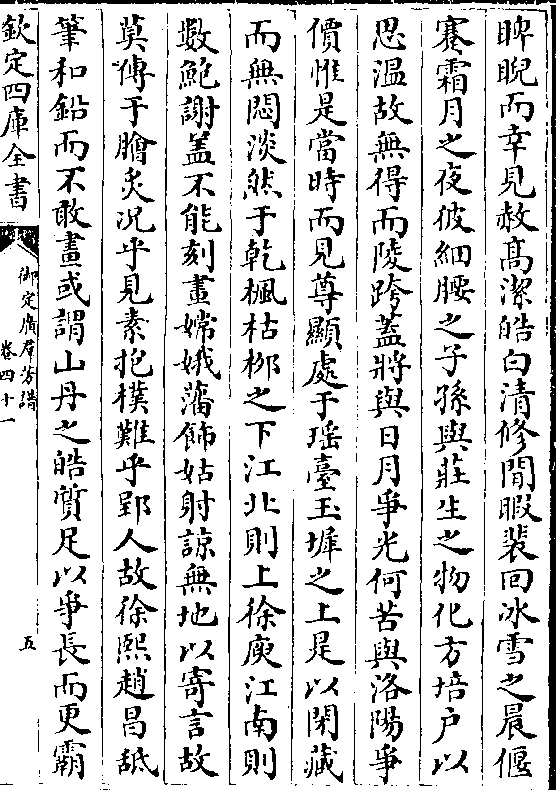 睥睨而幸見赦髙潔皓白清修閒暇裴回冰雪之晨偃
蹇霜月之夜彼細腰之子孫與莊生之物化方培户以
思温故無得而陵跨蓋將與日月爭光何苦與洛陽爭
價惟是當時而見尊顯處于瑶臺玉墀之上是以閑藏
而無悶淡然于乾楓枯栁之下江北則上徐庾江南則
數鮑謝盖不能刻畫嫦娥藩飾姑射諒無地以寄言故
莫傳于膾炙况乎見素抱樸難乎郢人故徐熙趙昌䑛
筆和鉛而不敢畫或謂山丹之皓質足以爭長而更霸
欽定四庫全書
御定廣羣芳譜
卷四十一
五